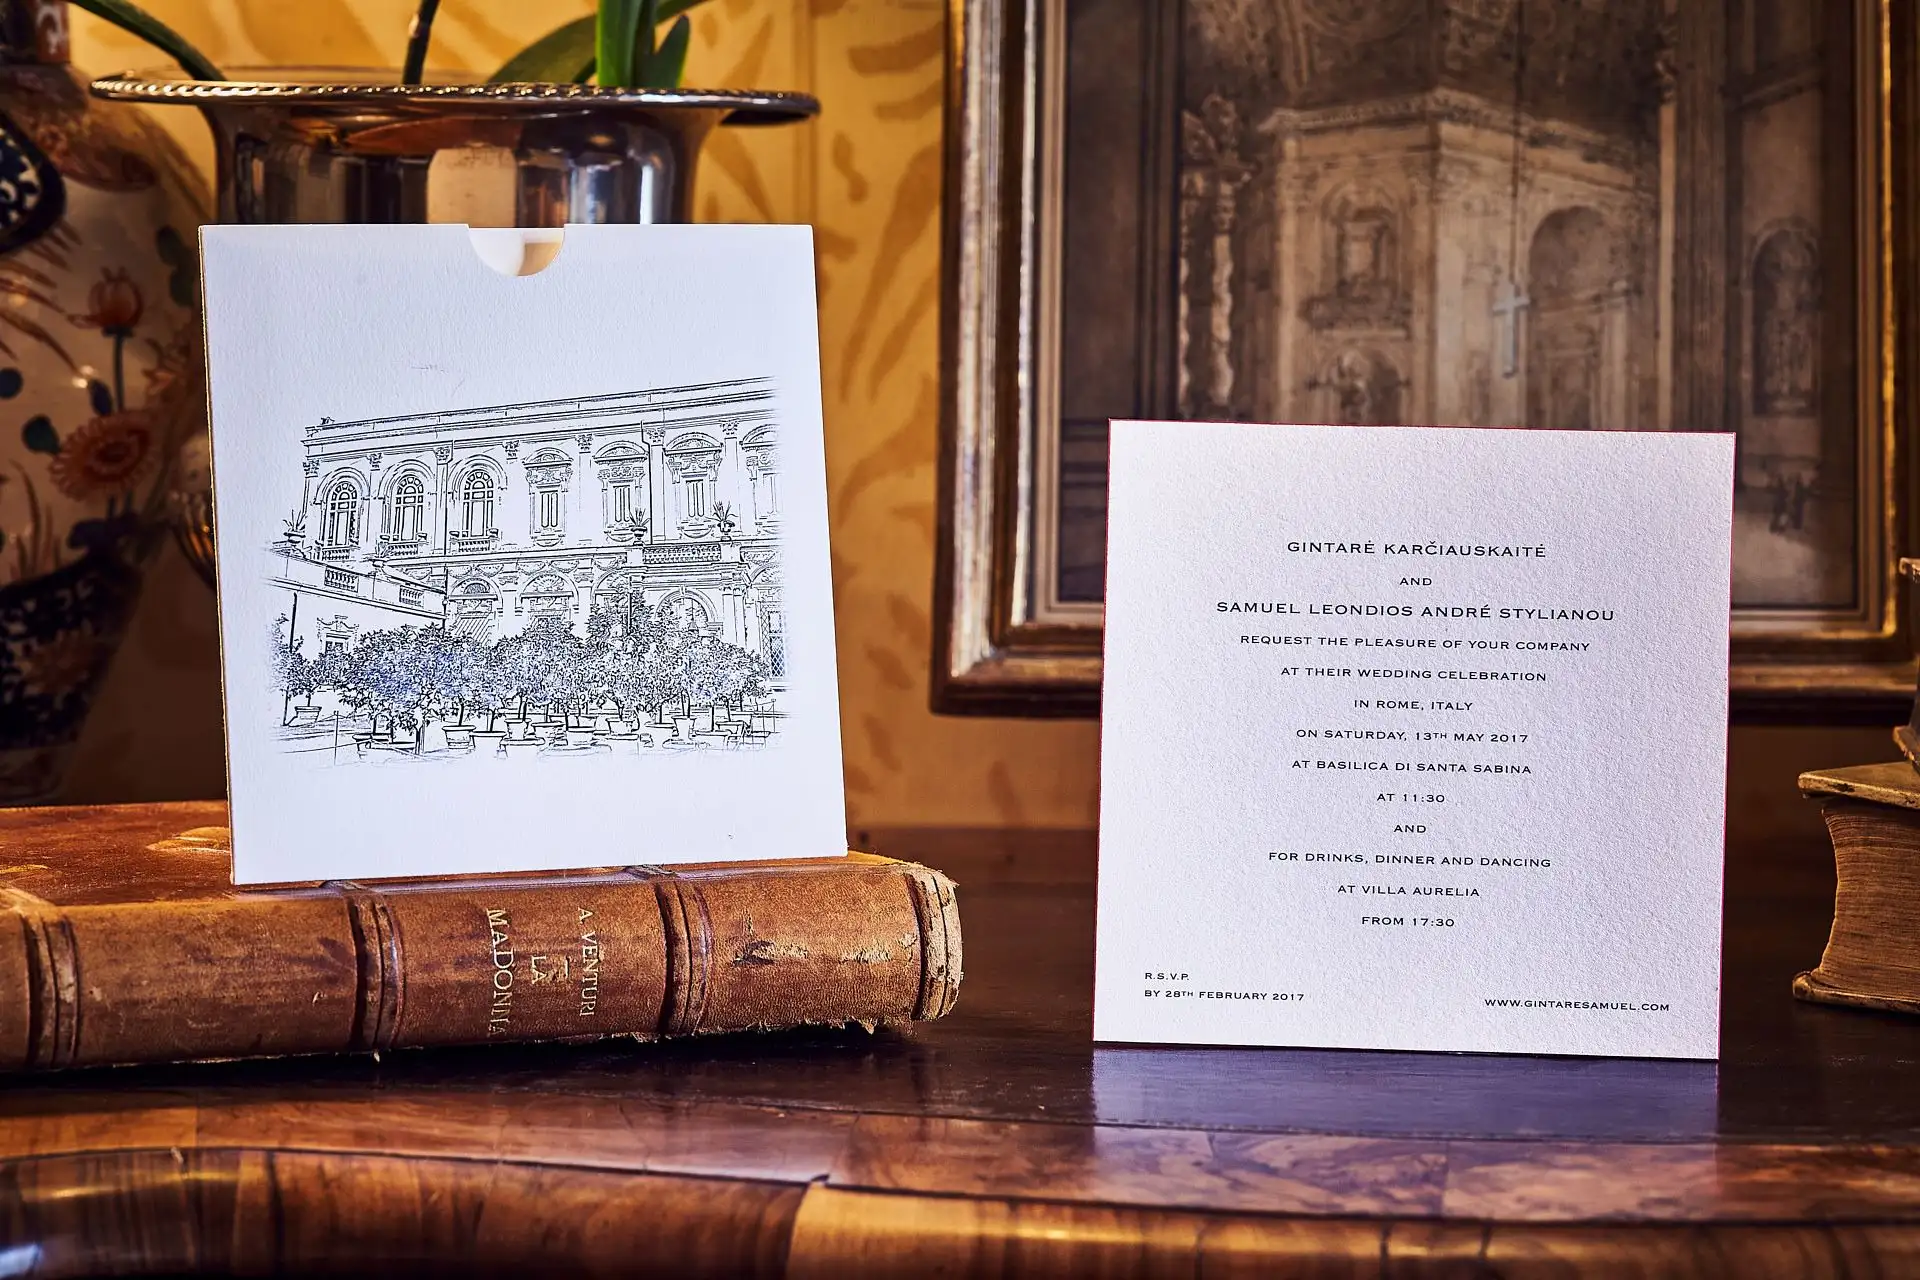 A. VENTURI
LA
MADONNA
GINTARĖ KARČIAUSKAITĖ
AND
SAMUEL LEONDIOS ANDRÉ STYLIANOU
REQUEST THE PLEASURE OF YOUR COMPANY
AT THEIR WEDDING CELEBRATION
IN ROME, ITALY
ON SATURDAY, 13TH MAY 2017
AT BASILICA DI SANTA SABINA
AT 11:30
AND
FOR DRINKS, DINNER AND DANCING
AT VILLA AURELIA
FROM 17:30
R.S.V.P.
BY 28TH FEBRUARY 2017
WWW.GINTARESAMUEL.COM